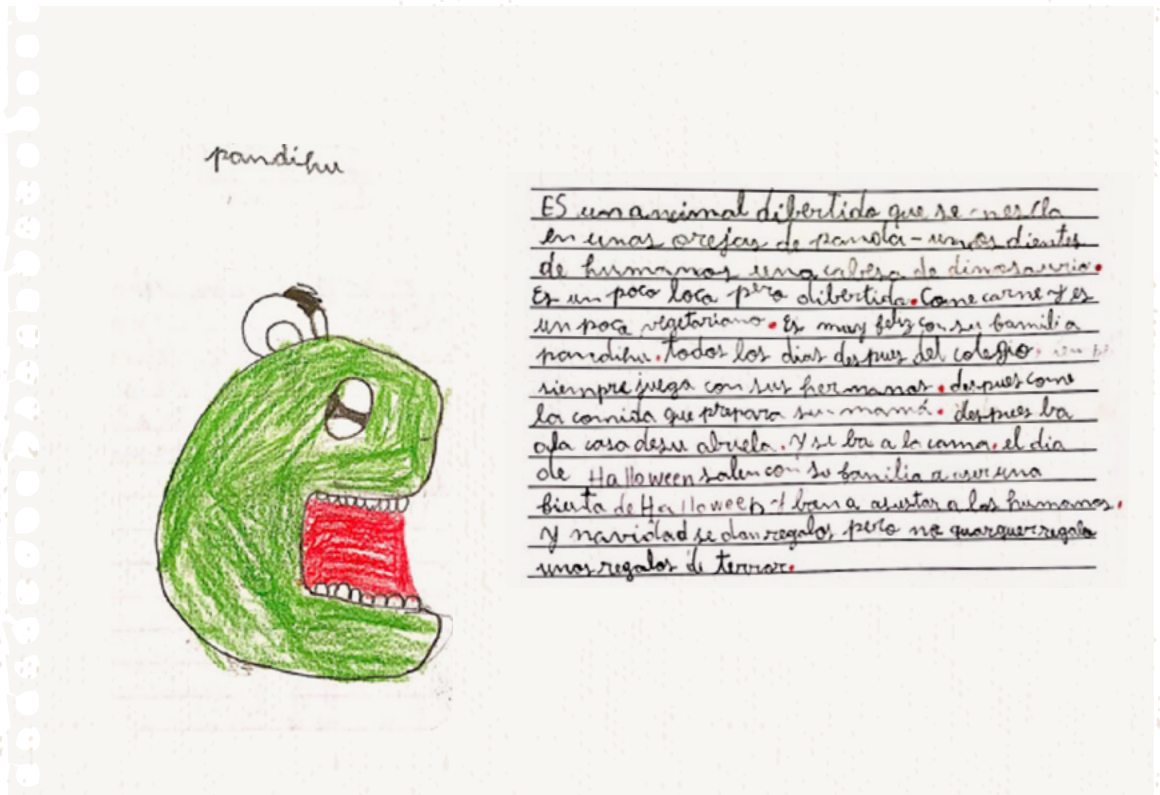 pandihu
ES un animal dibertido que se mescla
en unas orejas de panda - unos dientes
de humanos una cabesa de dinosaurio.
Es un poco loco pero dibertido. Come carne y es
un poco vegetariano. Es muy feliz con su familia
pandihu. todos los dias despues del colegio
siempre juega con sus hermanas. despues come
la comida que prepara su mamá. despues ba
ala casa desu abuela. Y se ba a la cama. el dia
de Halloween salen con so familia a una
fiesta de Halloween y ban a asustar a los humanos.
Y navidad se dan regalos pero no quarquer regalo
unos regalos de terror.